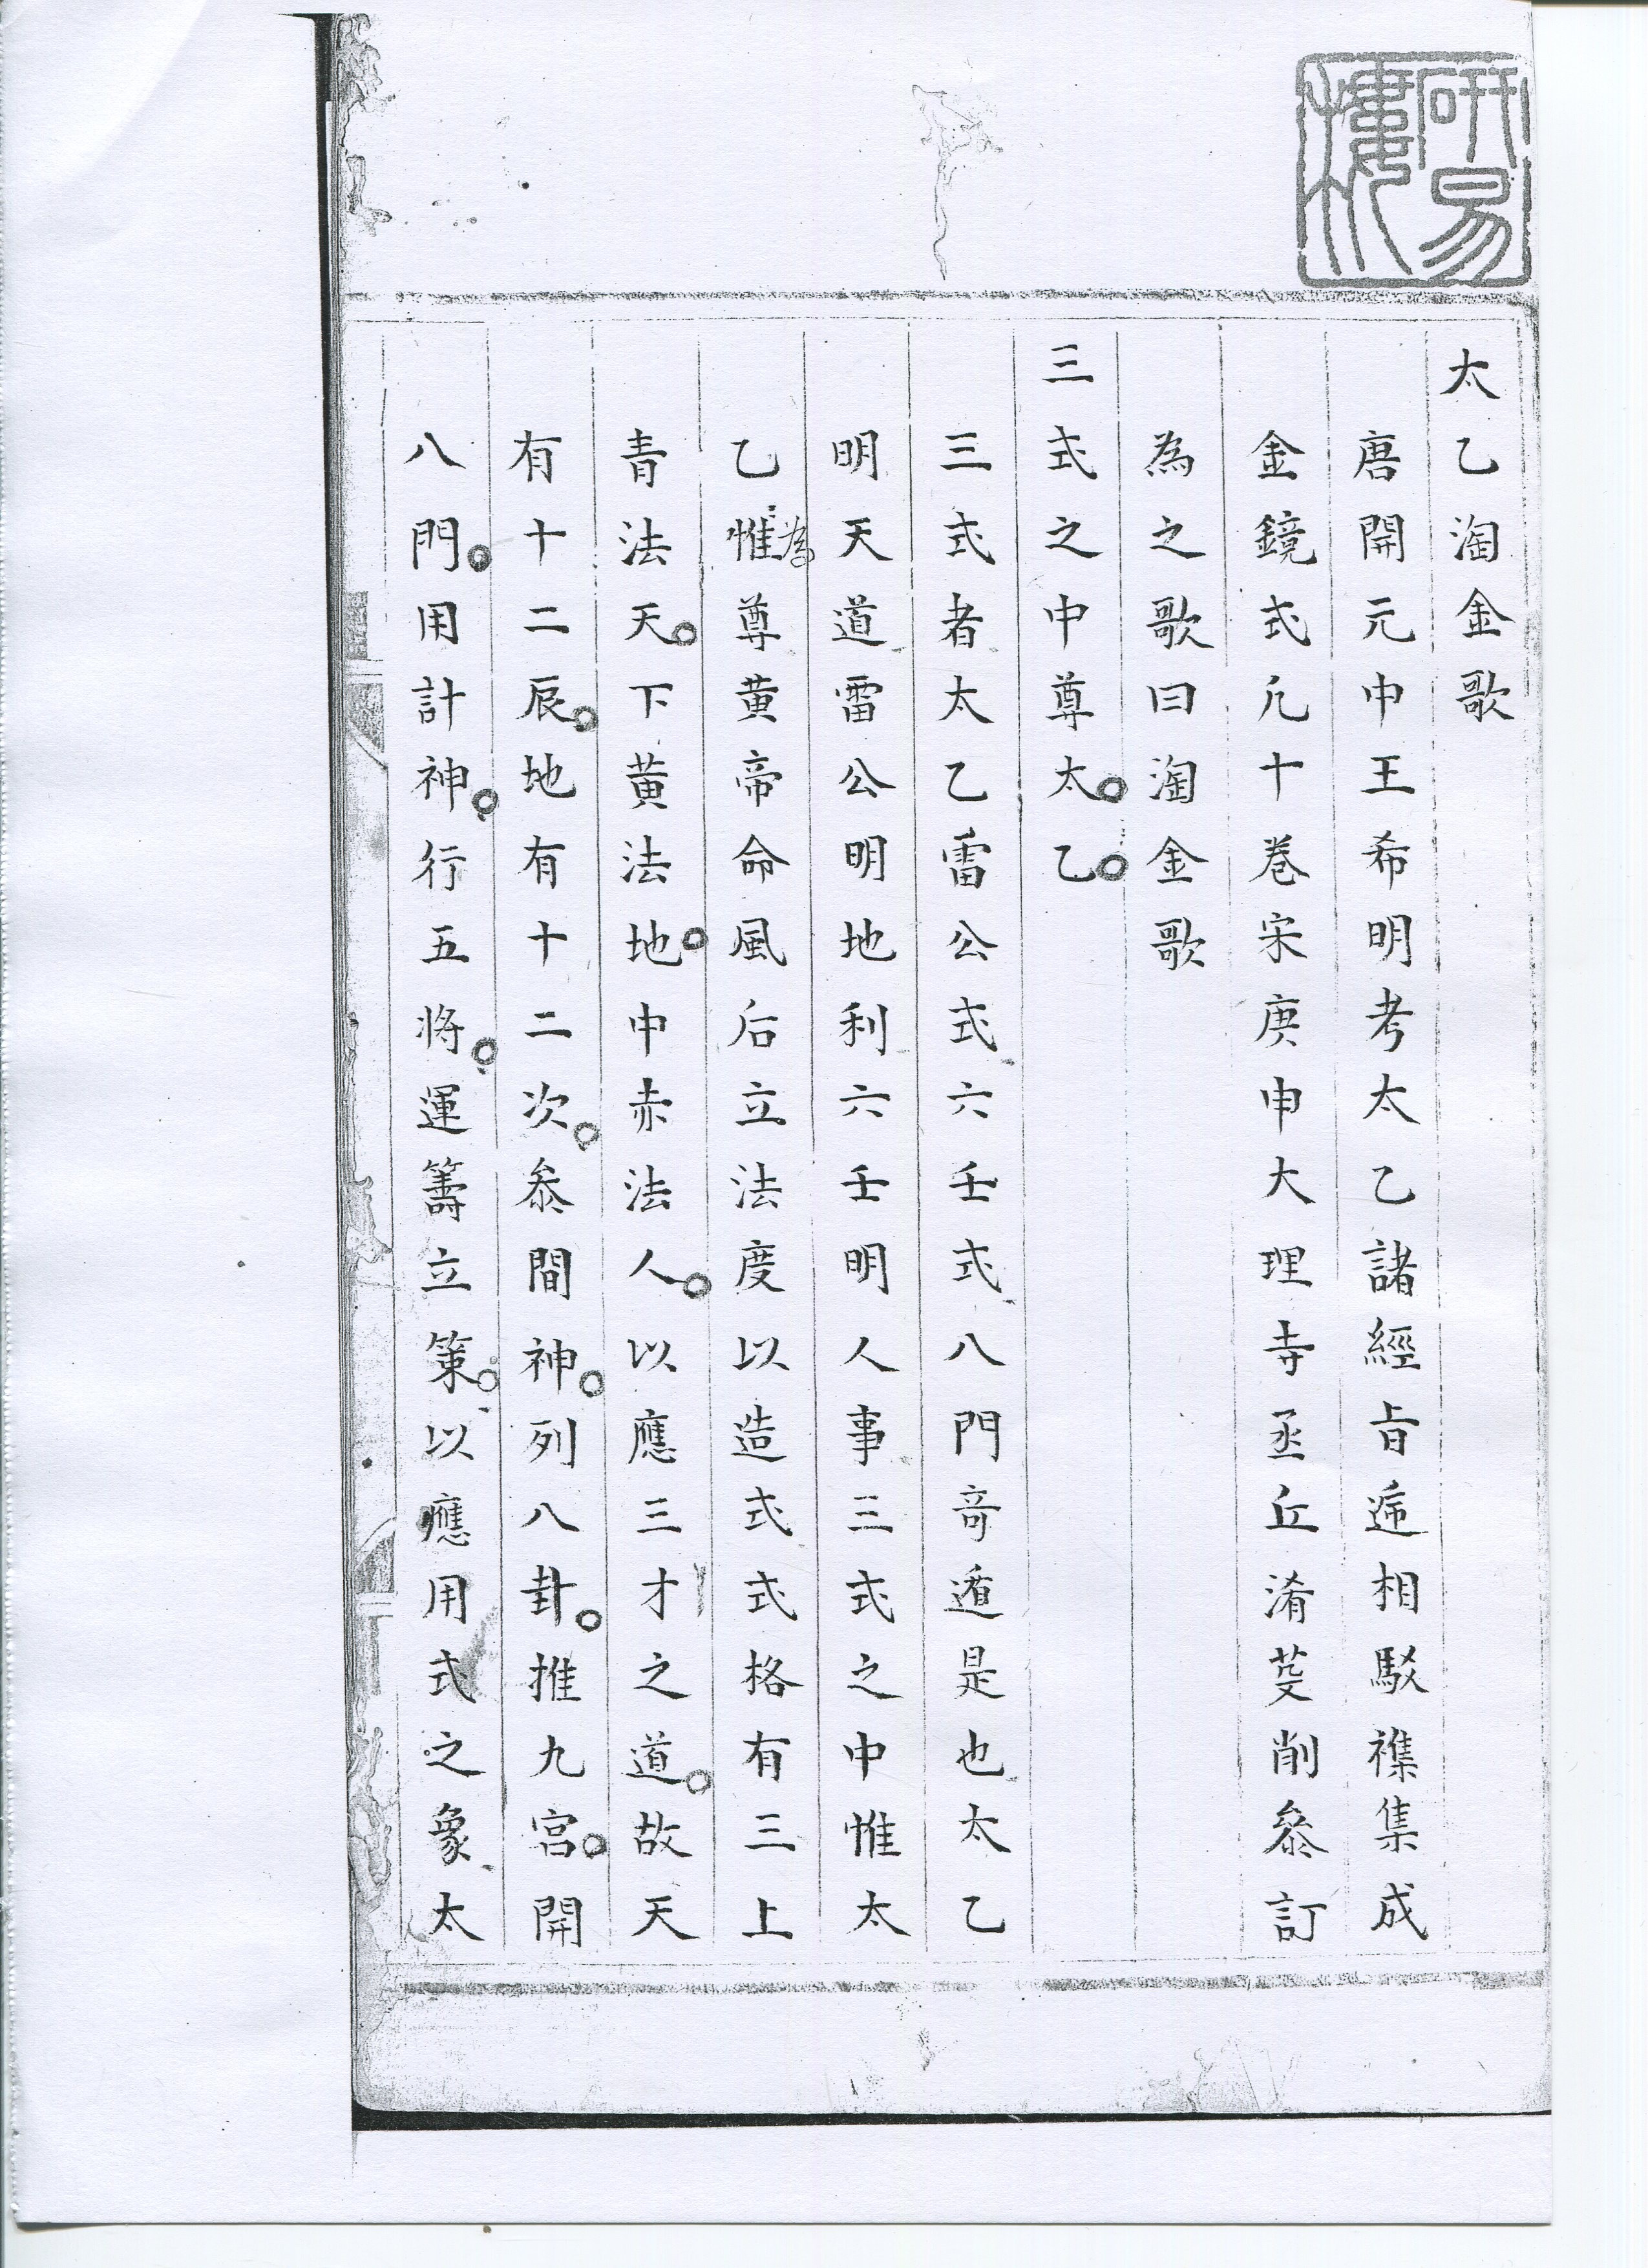 研易樓
太乙淘金歌
唐開元中王希明考太乙諸經旨遞相駁襍集成
金鏡式凡十卷宋庚申大理寺丞丘濬芟削叅訂
為之歌曰淘金歌
三式之中尊太乙
三式者太乙雷公式六壬式八門竒遁是也太乙
明天道雷公明地利六壬明人事三式之中惟太
乙惟為尊黄帝命風后立法度以造式式格有三上
青法天下黄法地中赤法人以應三才之道故天
有十二辰地有十二次叅間神列八卦推九宫開
八門用計神行五將運籌立策以應用式之象太